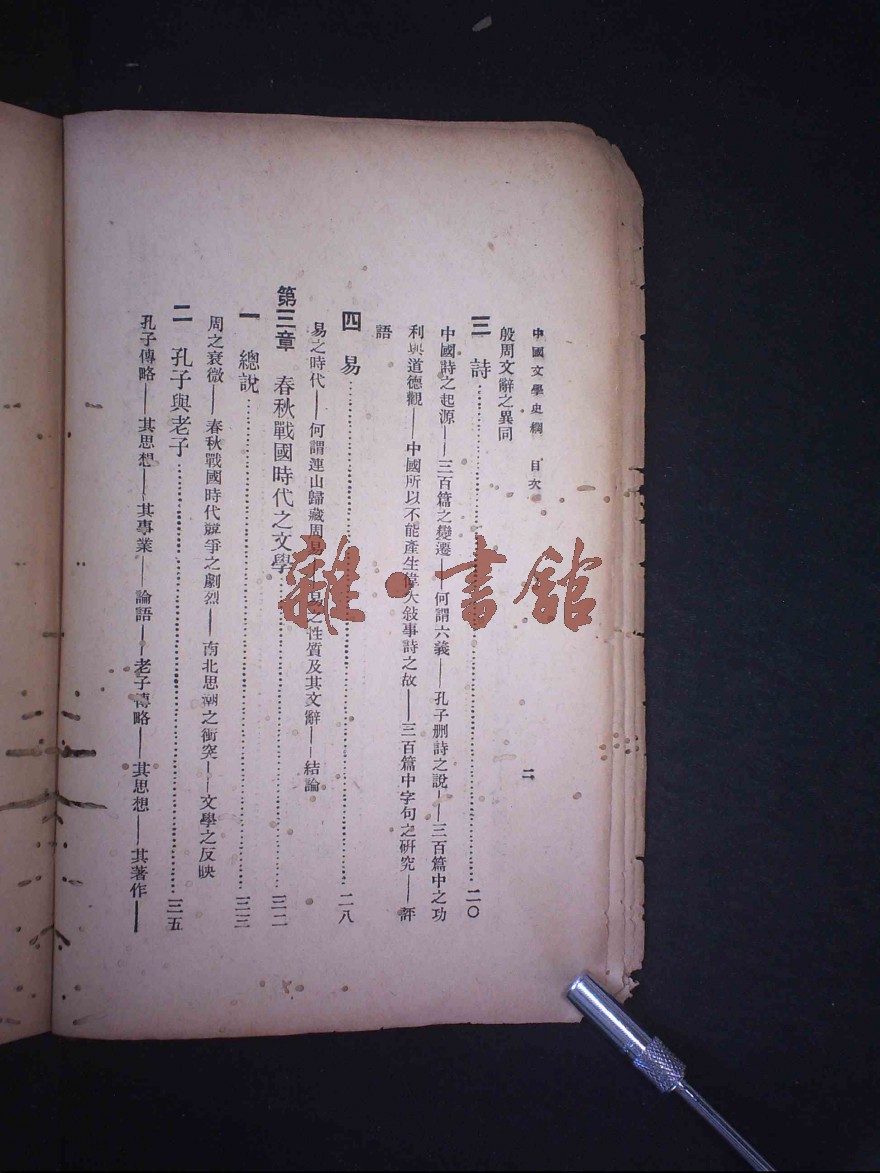 中國文學史綱　目次
二
殷周文辭之異同
三　詩……………………二〇
中國詩之起源——三百篇之變遷——何謂六義——孔子刪詩之說——三百篇中之功
利與道德觀——中國所以不能產生偉大敍事詩之故——三百篇中字句之研究——評
語
四　易……………………二八
易之時代——何謂連山歸藏周易——易之性質及其文辭——結論
第三章　春秋戰國時代之文學……………………三二
一　總說……………………三三
周之衰微——春秋戰國時代競爭之劇烈——南北思潮之衝突——文學之反映
二　孔子與老子……………………三五
孔子傳略——其思想——其事業——論語——老子傳略——其思想——其著作——
雜·書館